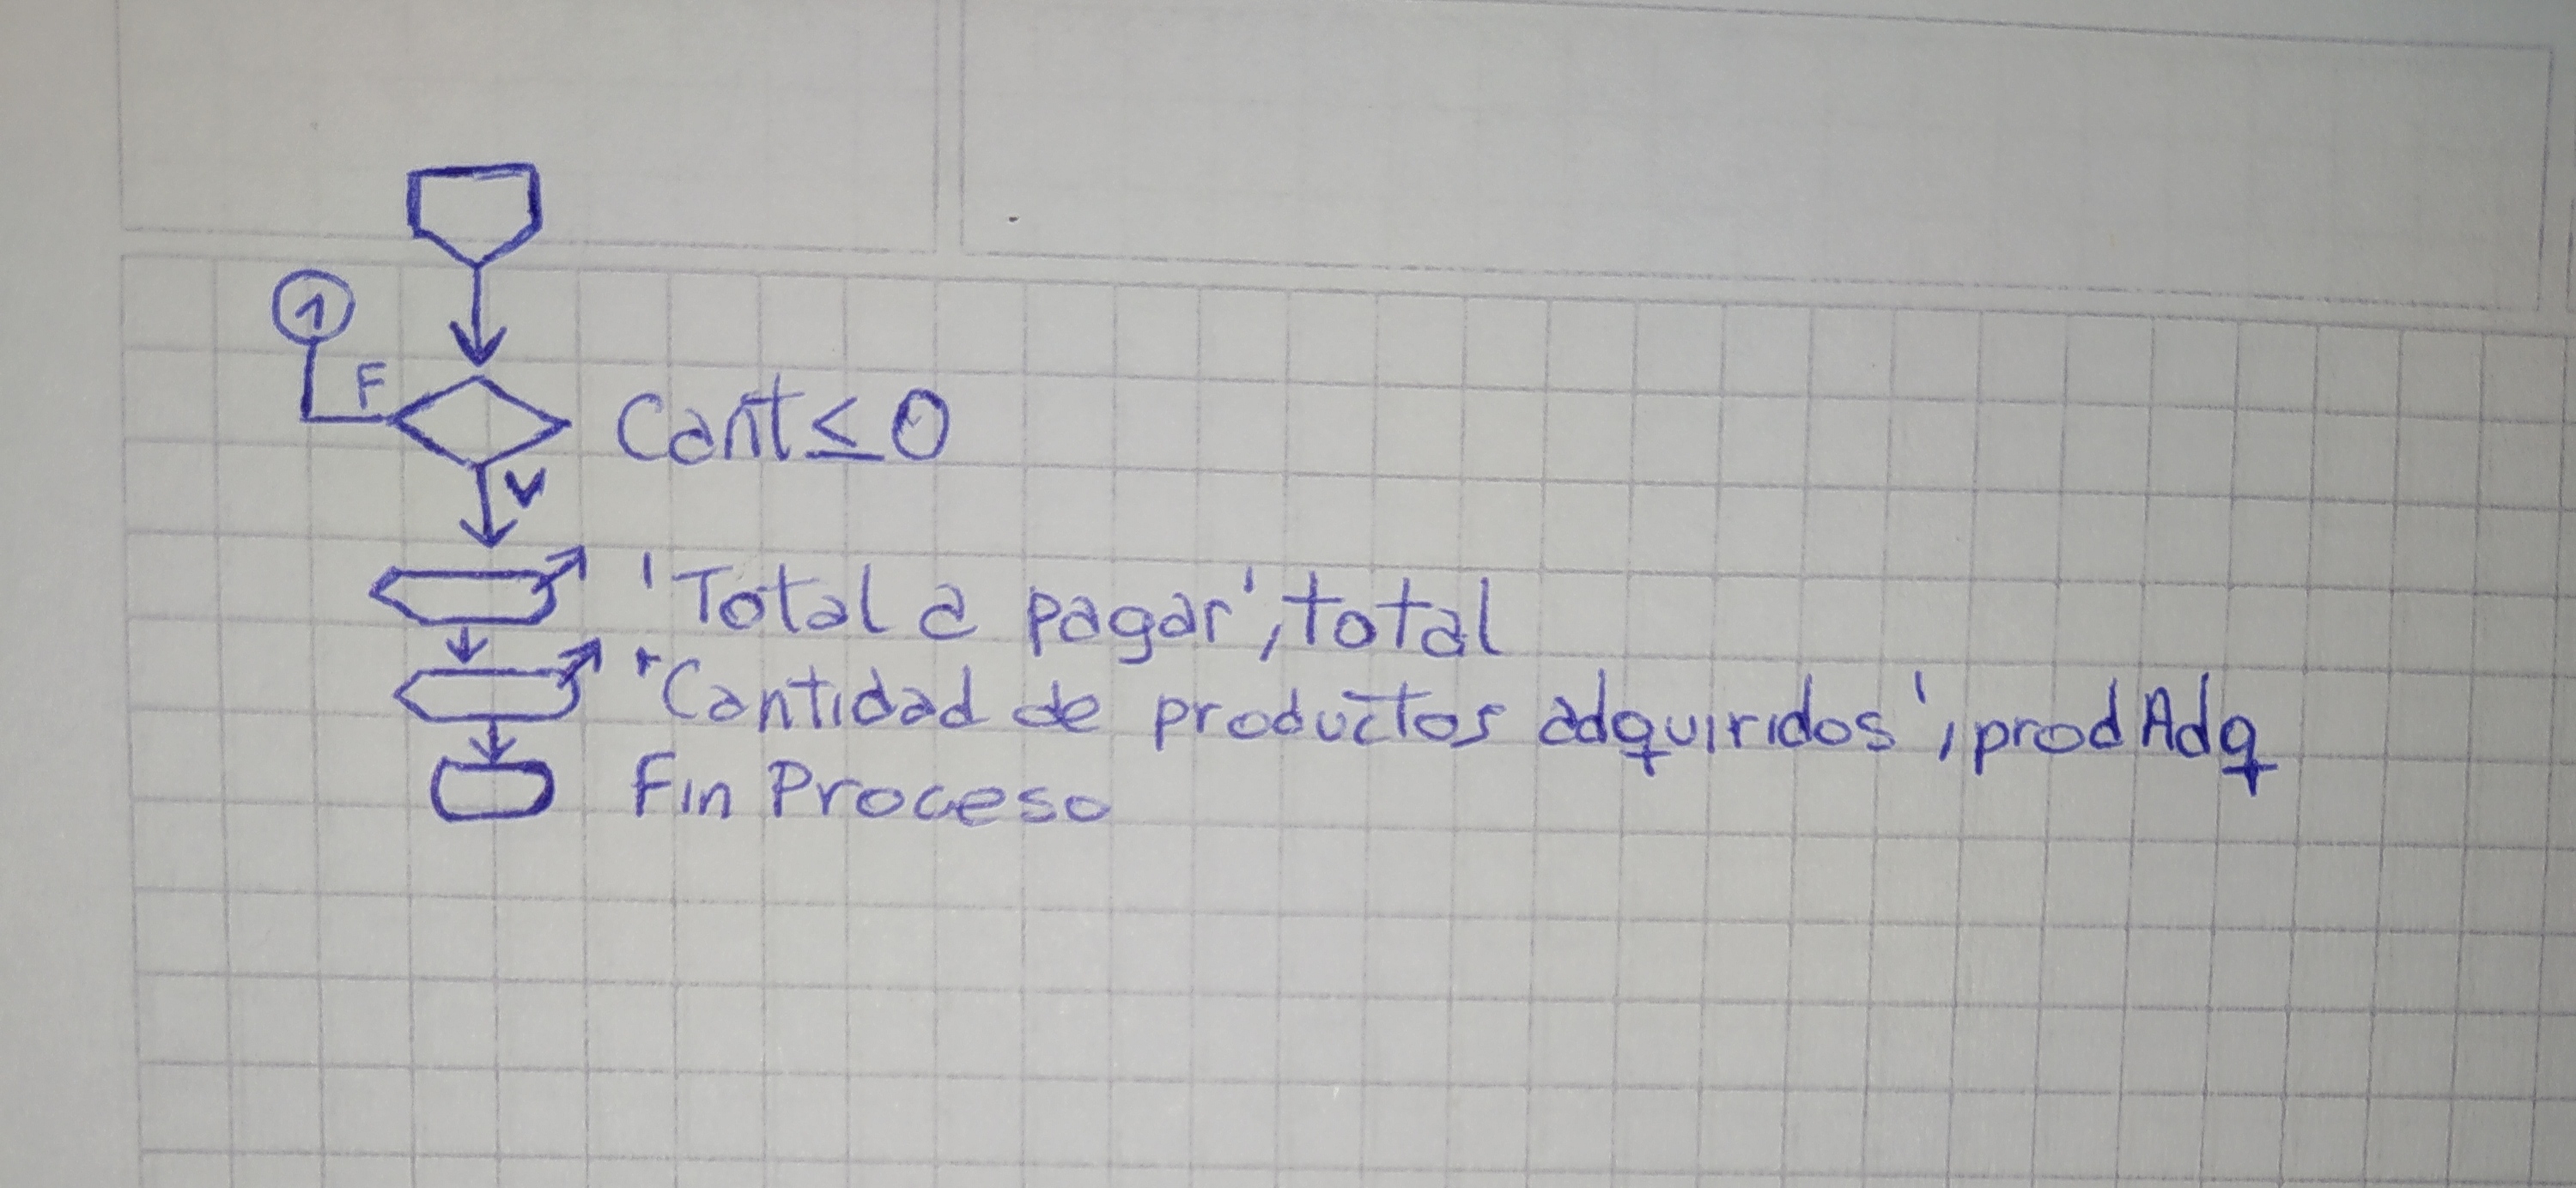 1
F
Cant ≤ 0
V
'Total a pagar', total
'Cantidad de productos adquiridos', prodAdq
Fin Proceso